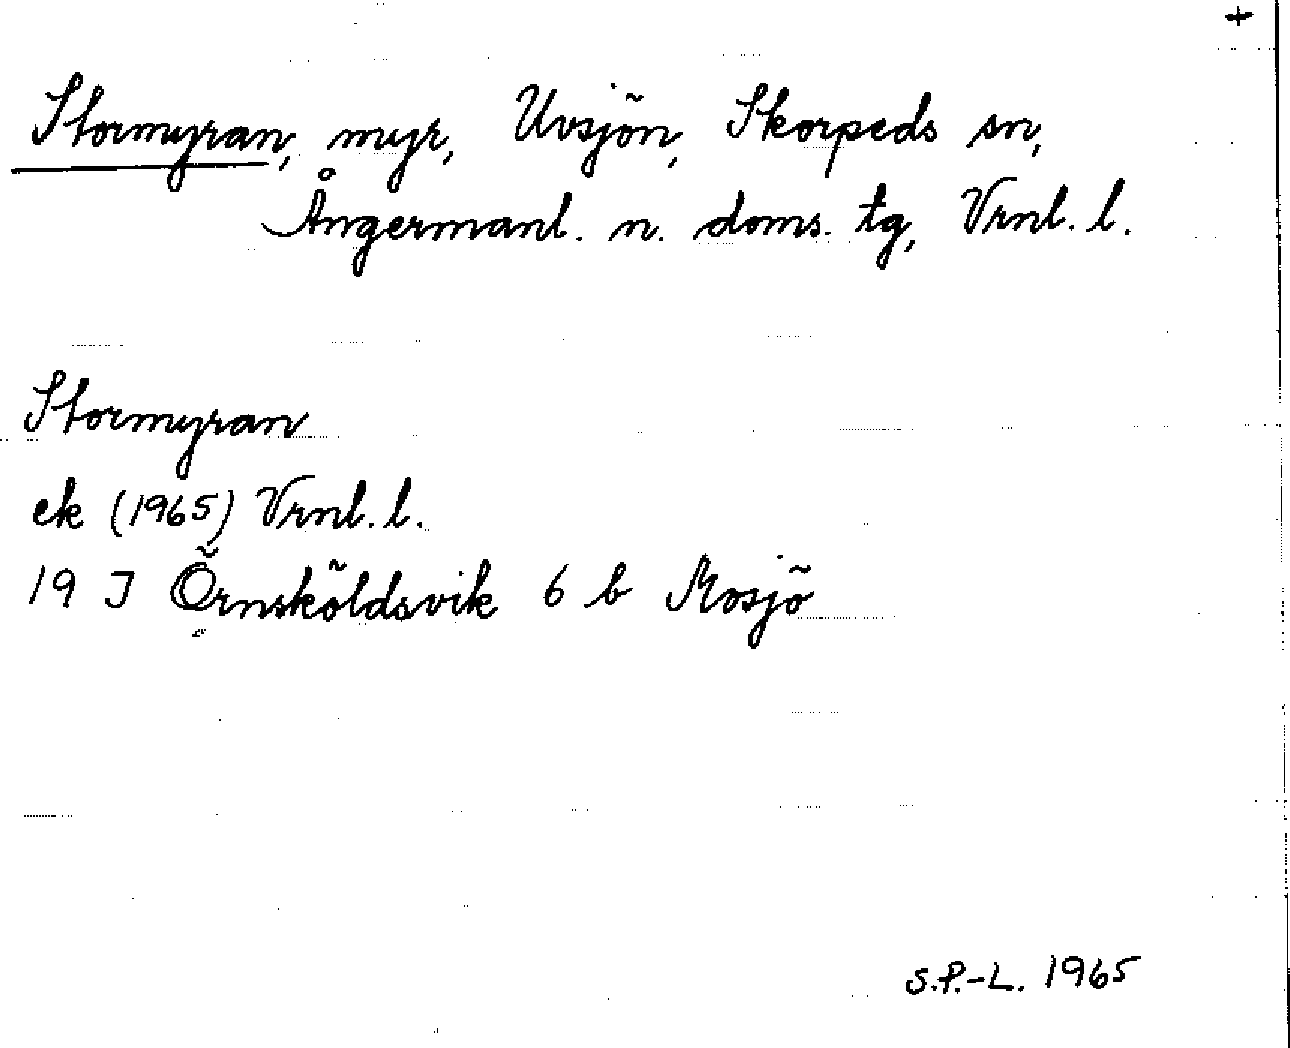 +
Stormyran, myr, Uvsjön, Skorpeds sn,
Ångermanl. n. doms. tg, Vrnl. l.
Stormyran
ek (1965) Vrnl. l.
19 J Örnsköldsvik 6 b Mosjö
S.P.-L. 1965